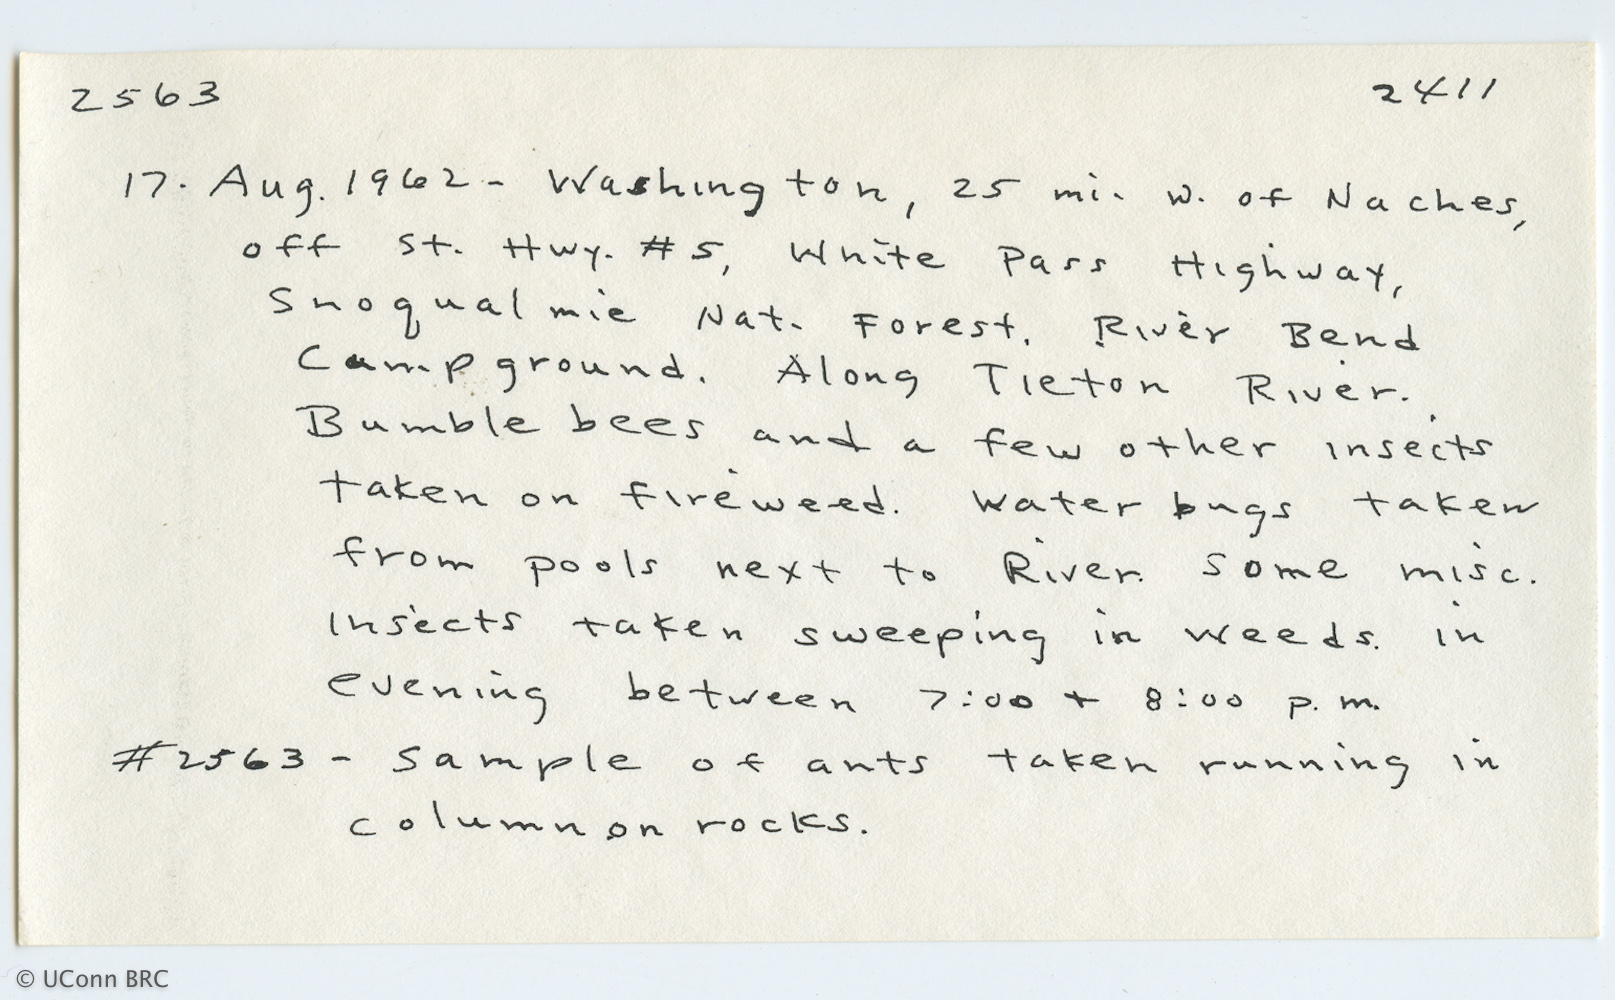 2563 2411
17. Aug. 1962 - Washington, 25 mi. w. of Naches,
off St. Hwy. #5, White Pass Highway,
Snoqualmie Nat. Forest. River Bend
Campground. Along Tieton River.
Bumble bees and a few other insects
taken on fireweed. Water bugs taken
from pools next to River. Some misc.
Insects taken sweeping in weeds. in
evening between 7:00 + 8:00 p.m.
#2563 - Sample of ants taken running in
column on rocks.
© UConn BRC